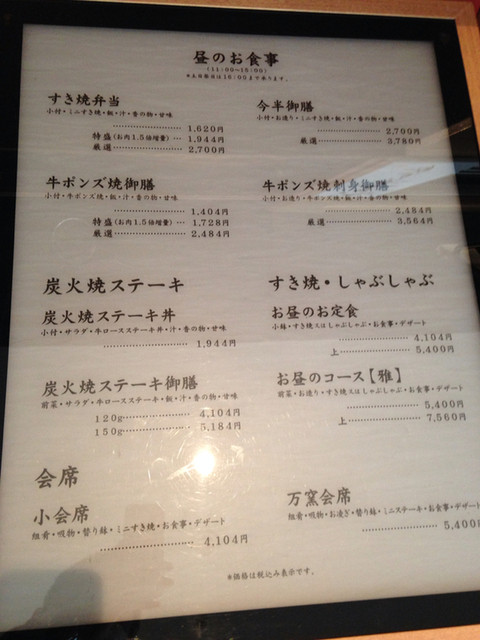 昼のお食事
(11:00~15:00)
※土日祭日は16:00まで承ります。
すき焼弁当
小付・ミニすき焼・飯・汁・香の物・甘味
1,620円
特盛(お肉1.5倍増量) 1,944円
厳選 2,700円
今半御膳
小付・お造り・ミニすき焼・飯・汁・香の物・甘味
2,700円
厳選 3,780円
牛ポンズ焼御膳
小付・牛ポンズ焼・飯・汁・香の物・甘味
1,404円
特盛(お肉1.5倍増量) 1,728円
厳選 2,484円
牛ポンズ焼刺身御膳
小付・お造り・牛ポンズ焼・飯・汁・香の物・甘味
2,484円
厳選 3,564円
炭火焼ステーキ
炭火焼ステーキ丼
小付・サラダ・牛ロースステーキ丼・汁・香の物・甘味
1,944円
炭火焼ステーキ御膳
前菜・サラダ・牛ロースステーキ・飯・汁・香の物・甘味
120g 4,104円
150g 5,184円
すき焼・しゃぶしゃぶ
お昼のお定食
小鉢・すき焼又はしゃぶしゃぶ・お食事・デザート
4,104円
上 5,400円
お昼のコース【雅】
前菜・お造り・すき焼又はしゃぶしゃぶ・お食事・デザート
5,400円
上 7,560円
会席
小会席
組肴・吸物・替り鉢・ミニすき焼・お食事・デザート
4,104円
万窯会席
組肴・吸物・お凌ぎ・替り鉢・ミニステーキ・お食事・デザ
5,400円
※価格は税込み表示です。